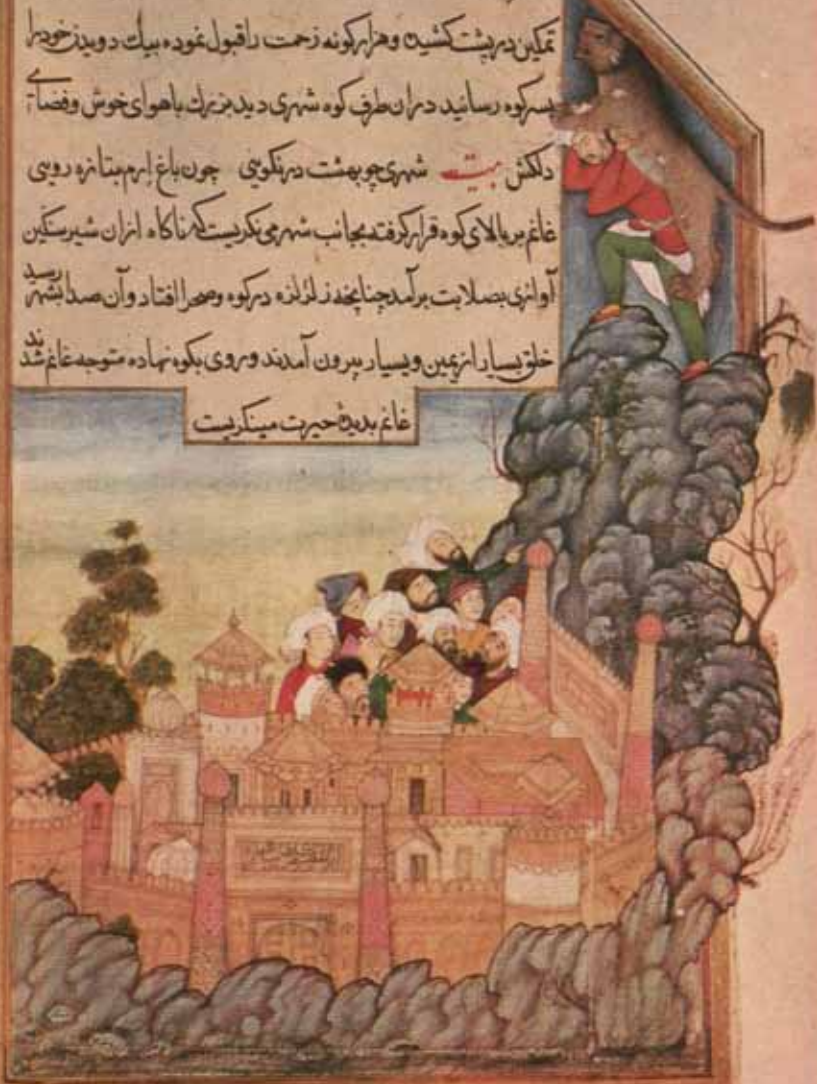 تمکین در پشت کشید و هزار کونه زحمت را قبول نموده بیك دویدن خود را
بسر کوه رسانید در ان طرف کوه شهری دید بزرك باهوای خوش و فضاے
دلکش بیت شهری چو بهشت در نکویی چون باغ ارم بتازه رویی
غانم بر بالای کوه قرار کرفته بجانب شهر می نکریست که ناکاه از ان شیر سنکین
آوازی بصلابت بر آمد چنانچه زلزله در کوه و صحرا افتاد و آن صدا بشهر رسید
خلق بسیار از یمین و یسار بیرون آمدند و روی بکوه نهاده متوجه غانم شدند
غانم بدیدۀ حیرت مینکریست